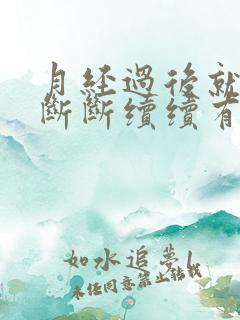 月经過後就
斷斷續續有
如水追夢1
未经同意禁止转载